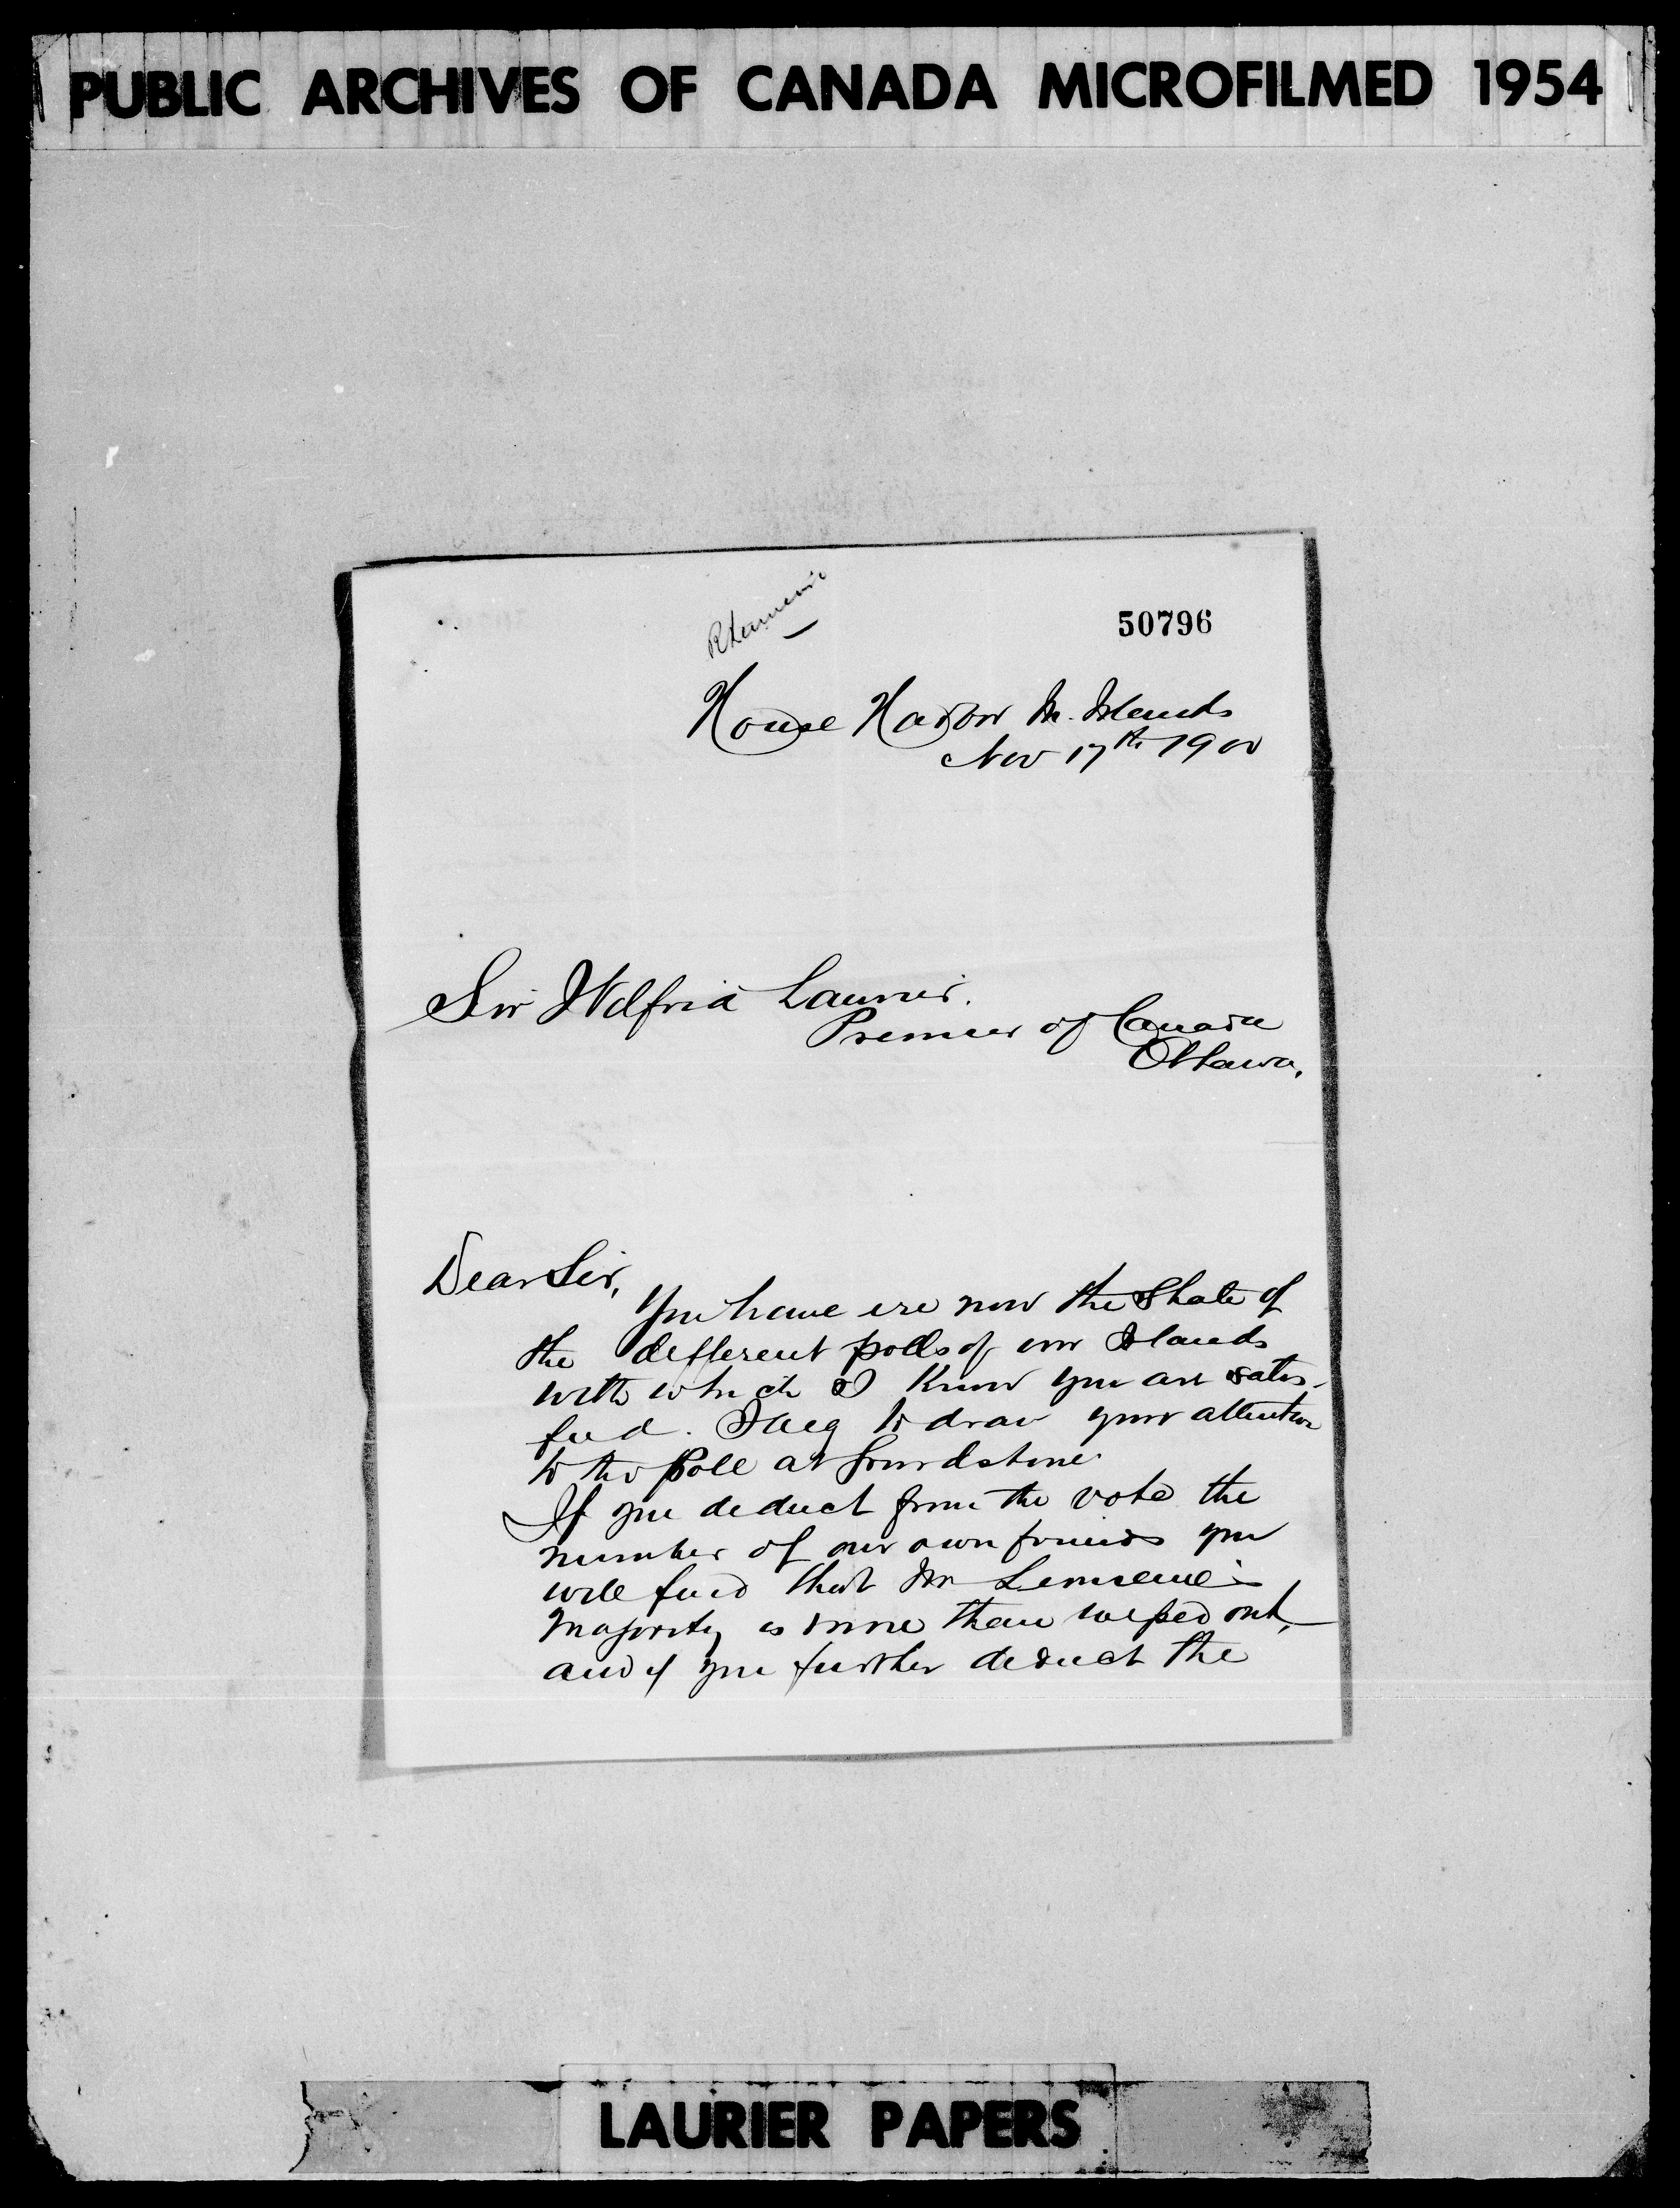 PUBLIC ARCHIVES OF CANADA MICROFILMED 1954
50796
House Harbor M. Islands
Nov 17th 1900
Sir Wilfrid Laurier.
Premier of Canada
Ottawa.
Dear Sir,
You have ere now the State of
the different polls of our Islands
with which I know you are satis-
fied. I beg to draw your attention
to the Poll at Grindstone.
If you deduct from the vote the
number of our own friends you
will find that Mr Lemieux's
majority is more than wiped out,
and if you further deduct the
LAURIER PAPERS